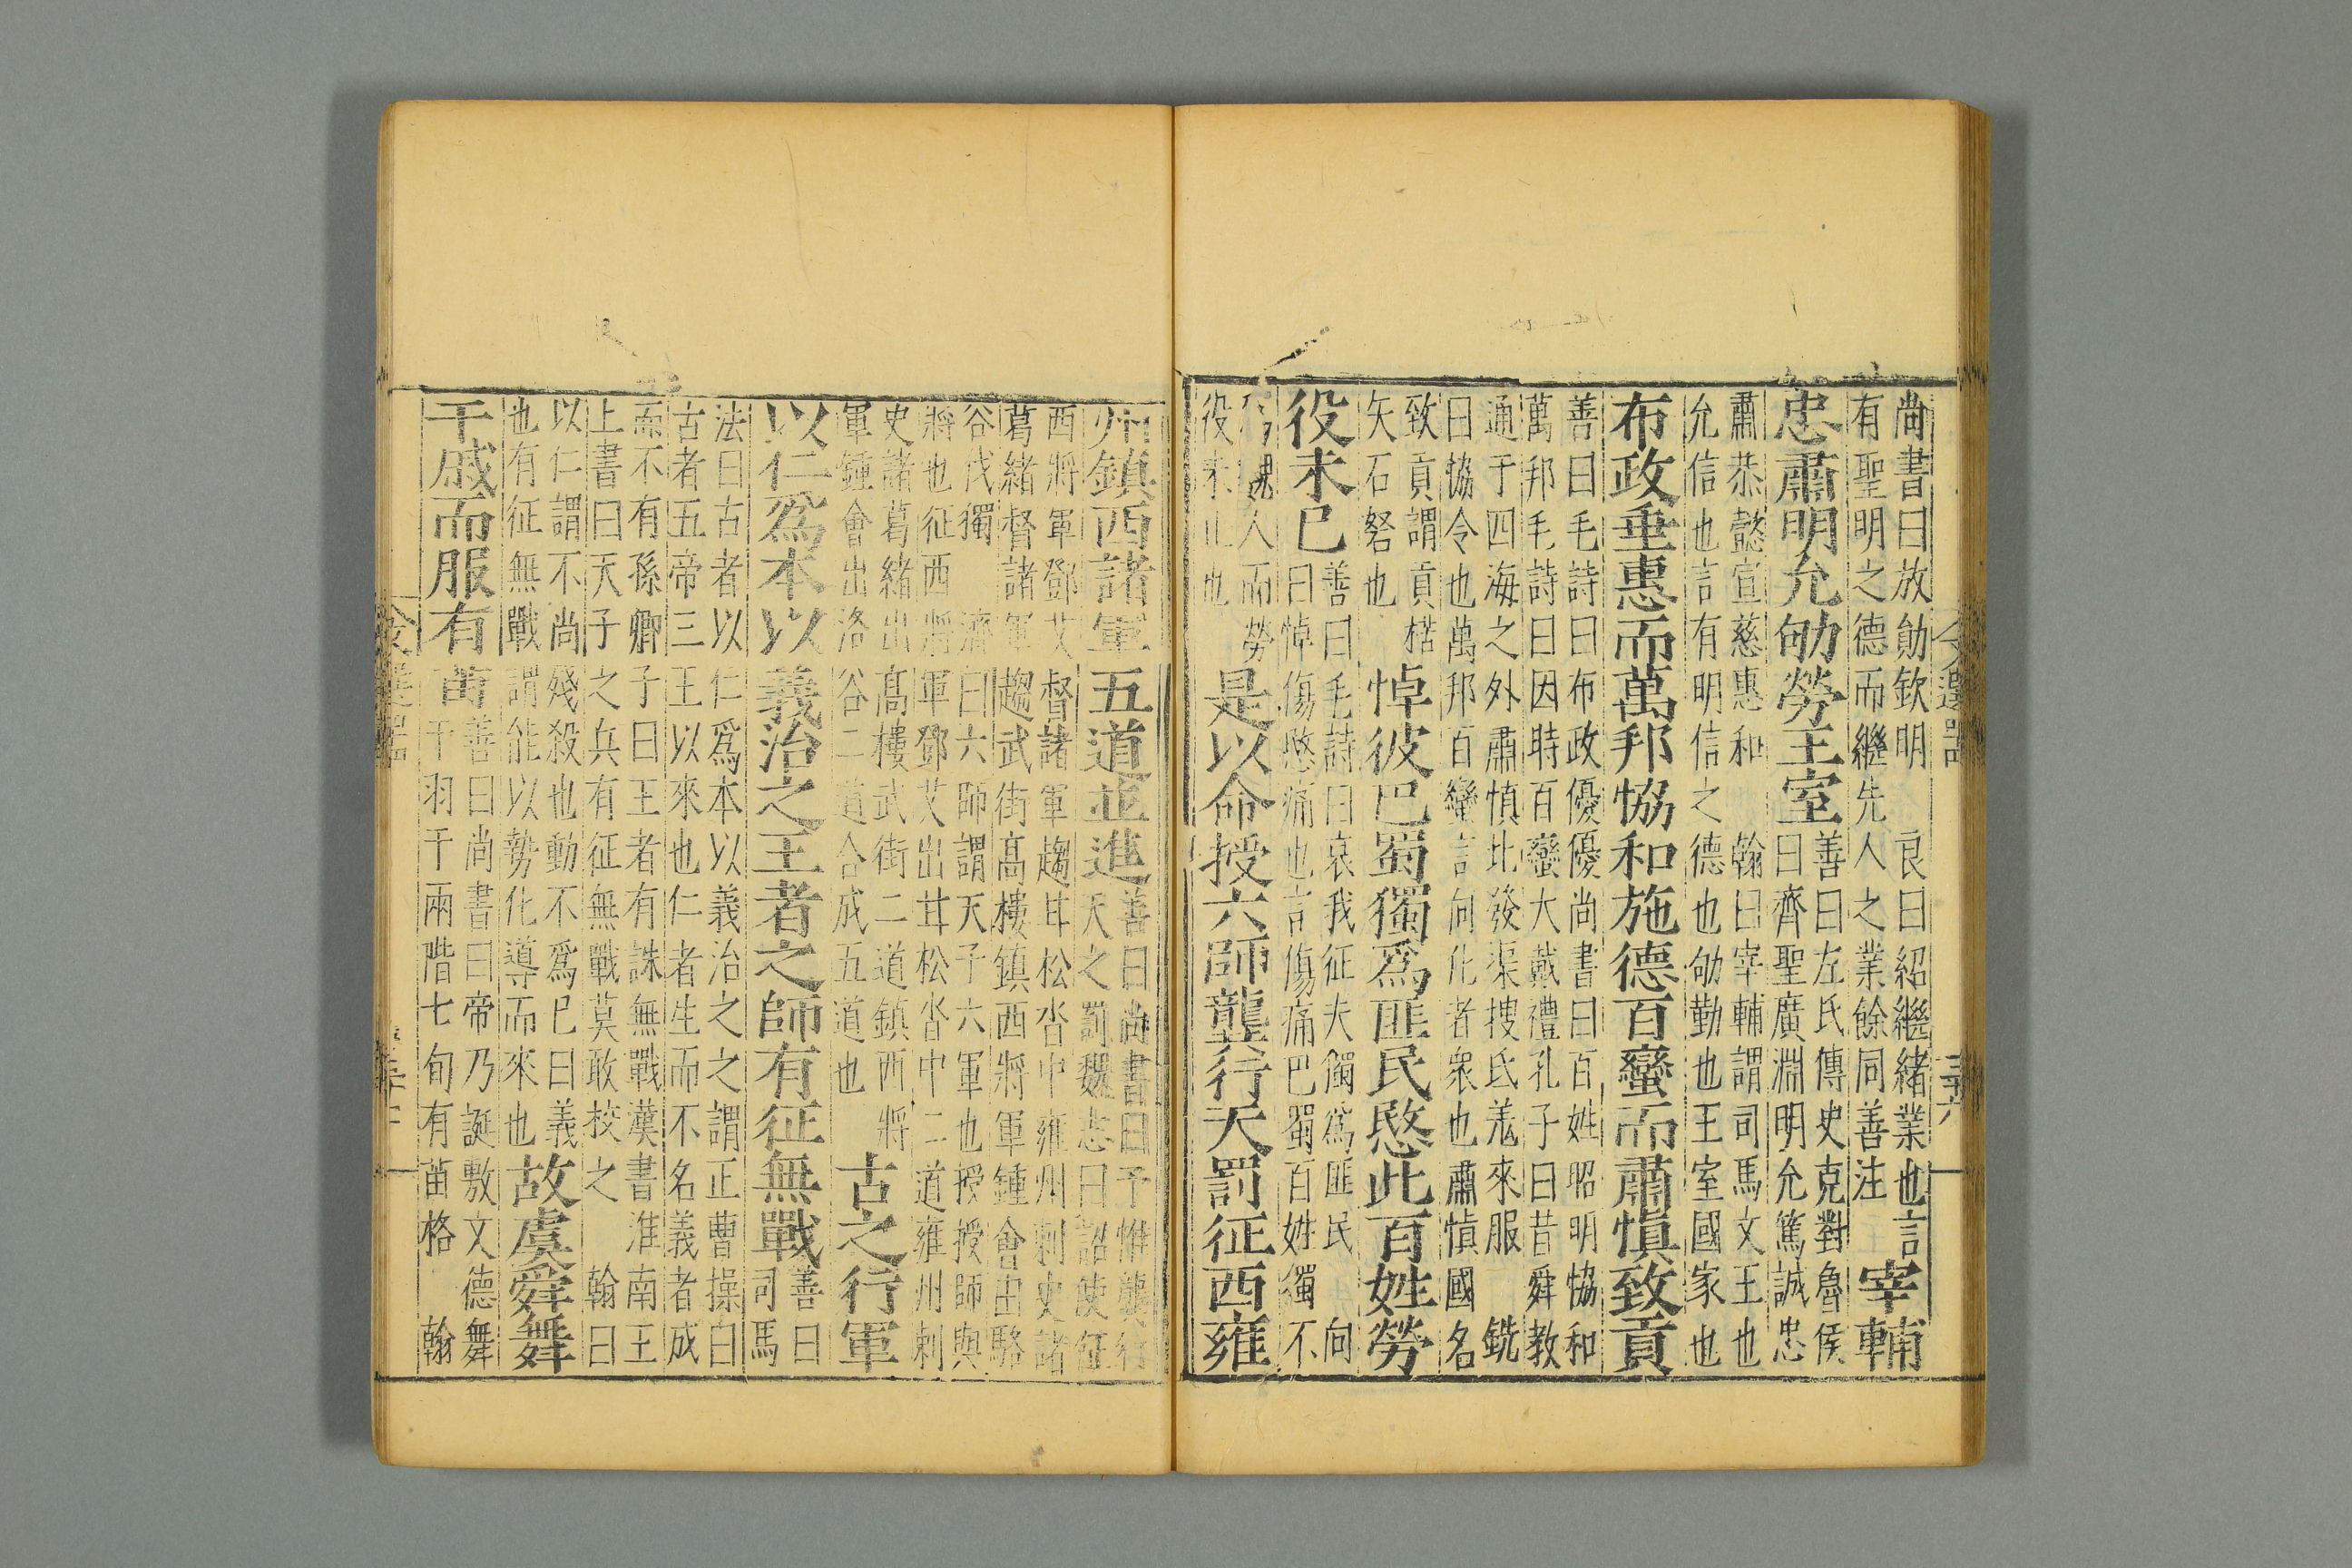 尚書曰放勛欽明 良曰紹繼緒業也言
有聖明之德而繼先人之業餘同善注
宰輔
忠肅明允劬勞王室
善曰左氏傳史克對魯侯
曰齊聖廣淵明允篤誠忠
肅恭懿宣慈惠和 翰曰宰輔謂司馬文王也
允信也言有明信之德也劬勤也王室國家也
布政垂惠而萬邦恊和施德百蠻而肅慎致貢
善曰毛詩曰布政優優尚書曰百姓昭明恊和
萬邦毛詩曰因時百蠻大戴禮孔子曰昔舜教
通于四海之外肅慎北發渠搜氐羗來服 銑
曰恊令也萬邦百蠻言向化者衆也肅慎國名
致貢謂貢楛
矢石砮也
悼彼巴蜀獨爲匪民愍此百姓勞
役未已
善曰毛詩曰哀我征夫獨爲匪民 向
曰悼傷愍痛也言傷痛巴蜀百姓獨不
魏人而勞
役未止也
是以命授六師龔行天罰征西雍
州鎮西諸軍五道並進
善曰尚書曰予惟龔行
天之罰魏志曰詔使征
西將軍鄧艾督諸軍趨甘松沓中雍州刺史諸
葛緒督諸軍趨武街髙樓鎮西將軍鍾會由駱
谷伐獨 濟曰六師謂天子六軍也授授師與
將也征西將軍鄧艾出甘松沓中二道雍州刺
史諸葛緒出髙樓武街二道鎮西將
軍鍾會出洛谷二道合成五道也
古之行軍
以仁爲本以義治之王者之師有征無戰
善曰
司馬
法曰古者以仁爲本以義治之之謂正曹操曰
古者五帝三王以來也仁者生而不名義者成
而不有孫卿子曰王者有誅無戰漢書淮南王
上書曰天子之兵有征無戰莫敢校之 翰曰
以仁謂不尚殘殺也動不爲巳曰義
也有征無戰謂能以勢化導而來也
故虞舜舞
干戚而服有苗
善曰尚書曰帝乃誕敷文德舞
干羽于兩階七旬有苗格 翰